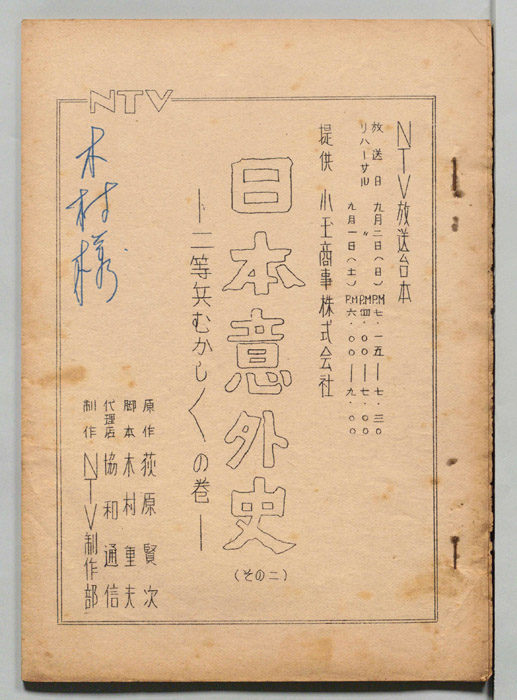 NTV
NTV放送台本
放送日 九月二日(日)P.M七・一五―七・三〇
リハーサル 〃 P.M四・〇〇―七・〇〇
九月一日(土)P.M六・〇〇―九・〇〇
提供 小玉商事株式会社
日本意外史
(その二)
―ト二等兵むかし〱の巻―
原作 荻原賢次
脚本 木村重夫
代理店 協和通信
制作 NTV制作部
木村様